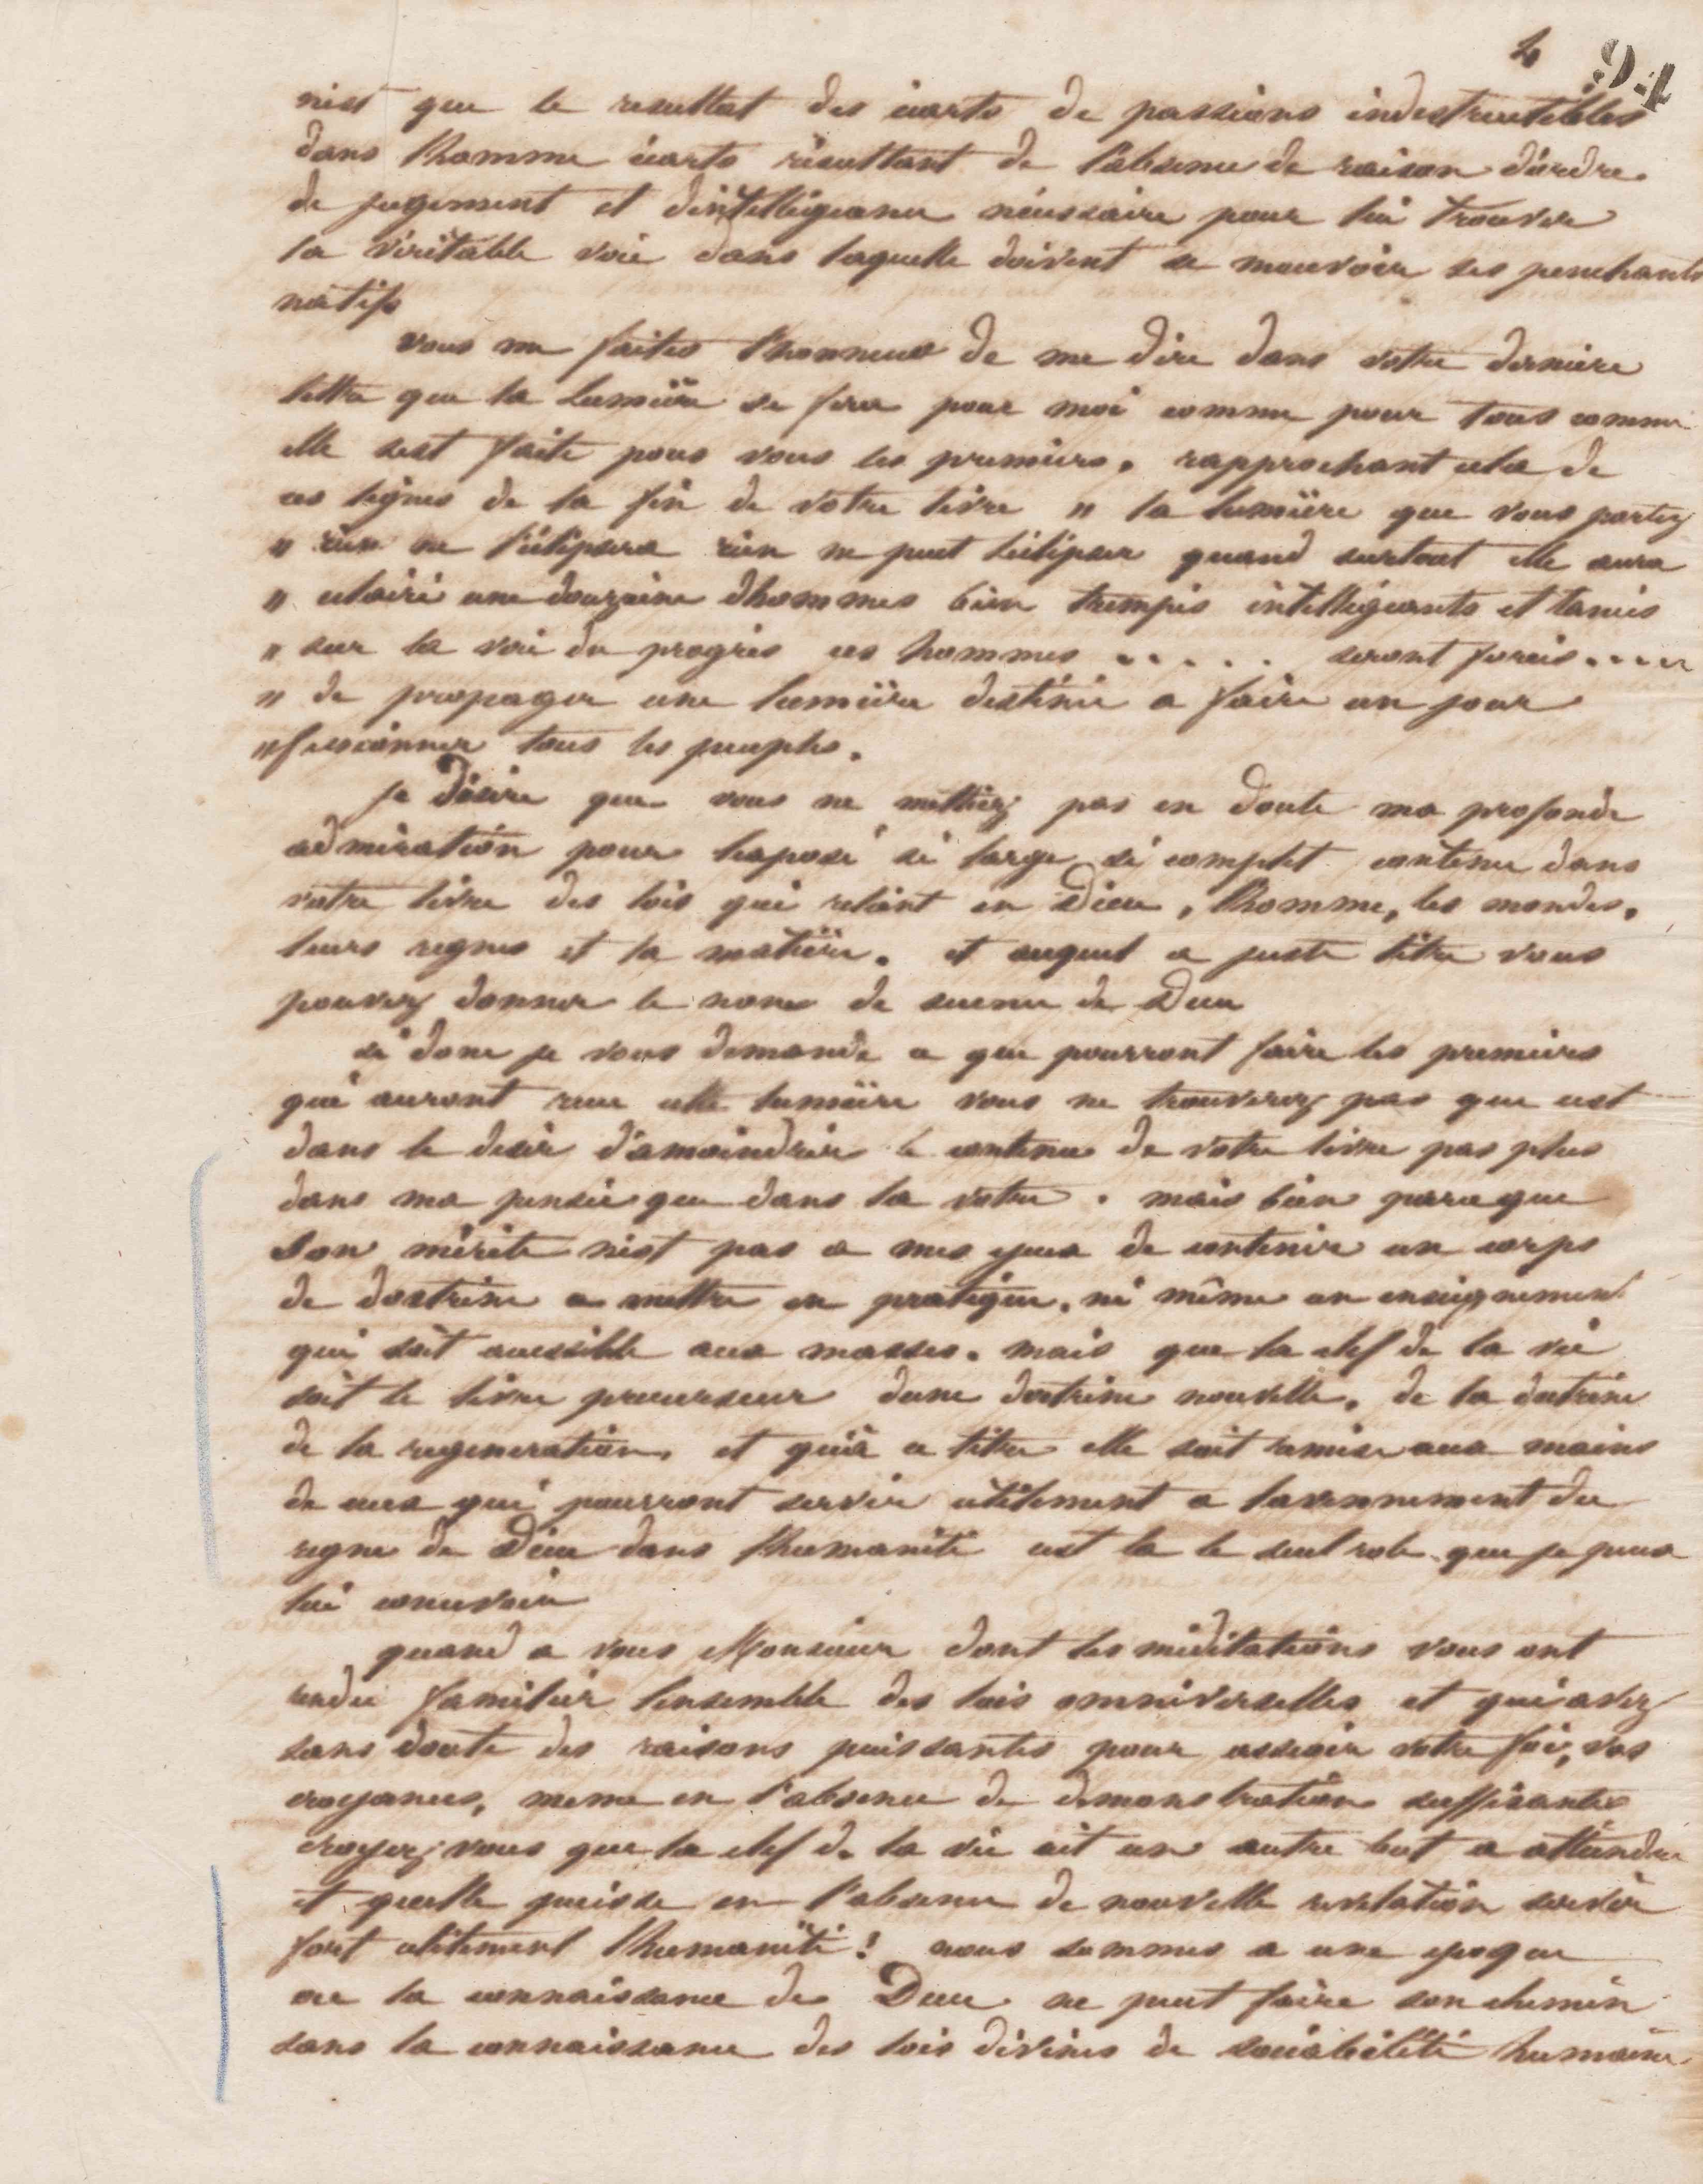 4 94
nest que le resultat des écarts de passions indestructibles
dans l'homme écarts résultant de l'absence de raison d'ordre
de jugement et d'intelligeance nécessaire pour lui trouver
la véritable voie dans laquelle doivent se mouvoir ses penchants
natifs
vous me faites l'honneur de me dire dans votre derniere
lettre que la lumière se fera pour moi comme pour tous comme
elle sest faite pour vous les premiers. rapprochant cela de
ces lignes de la fin de votre livre " la lumière que vous portez
" rien ne l'éclipsera rien ne peut l'éclipser quand surtout elle aura
" eclairé une douzaine dhommes bien trempés intelligeants et lancés
" sur la voie du progrès ces hommes . . . . . seront forcés . . . .
" de propager une lumière destinée a faire un jour
" fusionner tous les peuples.
je désire que vous ne mettiez pas en doute ma profonde
admiration pour lexposé si large si complet contenu dans
votre livre des lois qui relient en Dieu, l'homme, les mondes,
leurs regnes et la matière. et auquel a juste titre vous
pouvez donner le nom de science de Dieu
si donc je vous demande ce que pourront faire les premiers
qui auront recu cette lumière vous ne trouverez pas que cest
dans le desir d'amoindrir le contenu de votre livre pas plus
dans ma pensée que dans la votre. mais bien parceque
son mérite nest pas a mes yeux de contenir un corps
de doctrine a mettre en pratique, ni même un enseignement
qui soit accessible aux masses. mais que la clef de la vie
soit le livre precurseur dune doctrine nouvelle, de la doctrine
de la regeneration, et qu'a ce titre elle soit remise aux mains
de ceux qui pourront servir utilement a lavennement du
regne de Dieu dans l'humanité cest la le seul role que je peux
lui concevoir
quand a vous Monsieur dont les méditations vous ont
rendu familier lensemble des lois omniverselles et qui avez
sans doute des raisons puissantes pour asseoir votre foi, vos
croyances, meme en l'absence de demonstration suffisantes
croyez vous que la clef de la vie ait un autre but a atteindre
et quelle puisse en l'absence de nouvelle revelation servir
fort utilement l'humanité! nous sommes a une epoque
ou la connaissance de Dieu ne peut faire son chemin
sans la connaissance des lois divines de sociabilité humaine